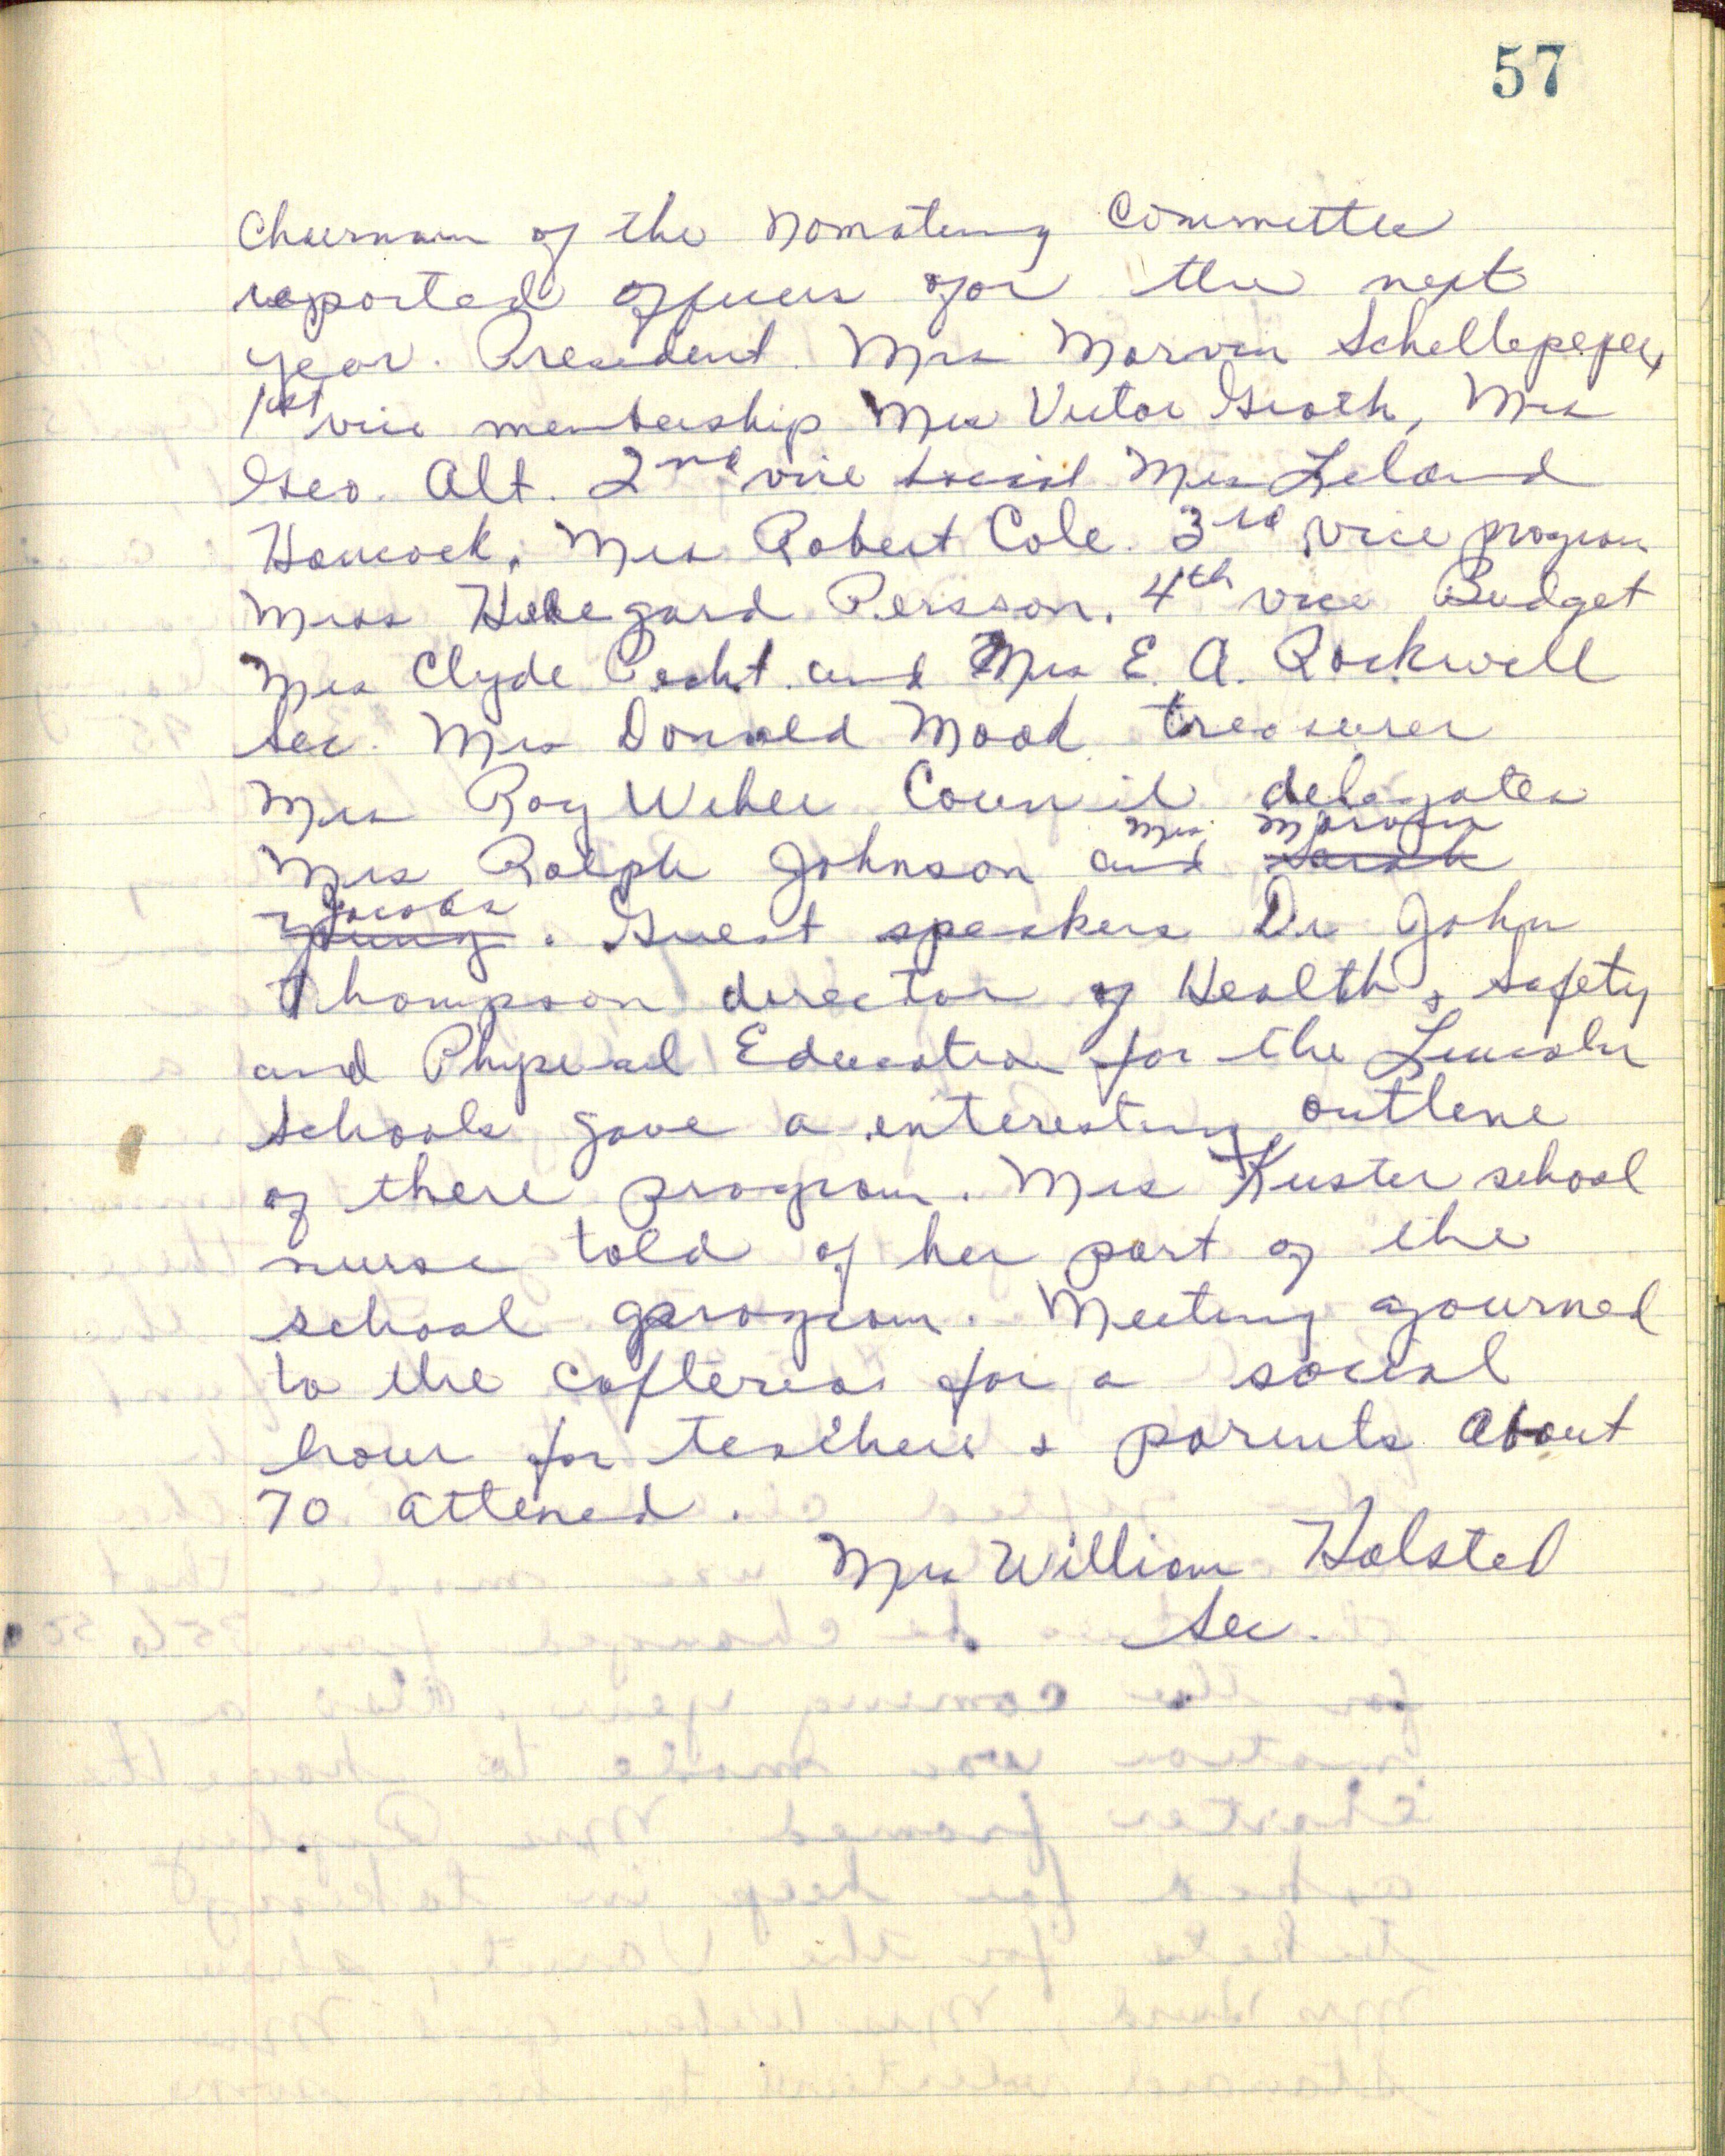 57
Chairman of the Nomating Committee
reported officers for the next
year. President. Mrs Marvin Schellpeper
1st vice membership Mrs Victor Groth, Mrs
Geo. Alt. 2nd vice social Mrs Leland
Hancock, Mrs Robert Cole. 3rd vice program
Miss Hildegard Persson. 4th vice Budget
Mrs Clyde and Mrs E. A. Rockwell
Sec. Mrs Donald Mood treasurer
Mrs Roy Weber Council delegates
Mrs Marvin
Mrs Ralph Johnson and Sarah
Jacobs
Young. Guest speakers Dr John
Thompson director of Health & Safety
and Physical Education for the Lincoln
Schools gave a interesting outline
of there program. Mrs Kuster school
nurse told of her part of the
school program. Meeting ajourned
to the cafteria for a social
hour for teachers & parents About
70 attened.
Mrs William Holsted
Sec.